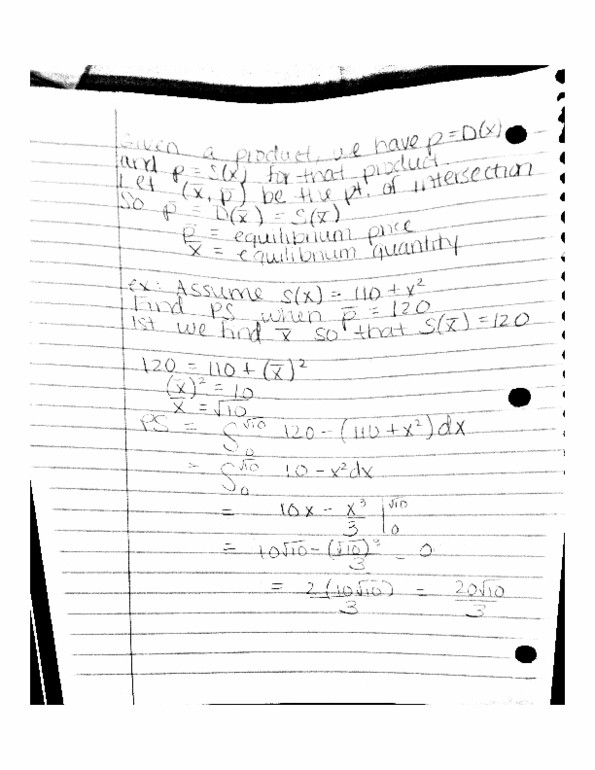 Given a product, we have p = D(x)
and p = S(x) for that product.
Let (x̄, p̄) be the pt. of intersection
So p̄ = D(x̄) = S(x̄)
p̄ = equilibrium price
x̄ = equilibrium quantity
ex: Assume S(x) = 110 + x²
Find PS when p̄ = 120
1st we find x̄ so that S(x̄) = 120
120 = 110 + (x̄)²
(x̄)² = 10
x̄ = √10
PS = ∫₀^√10 120 - (110 + x²) dx
= ∫₀^√10 10 - x² dx
= 10x - x³/3 |₀^√10
= 10√10 - (√10)³/3 - 0
= 2(10√10)/3 = 20√10/3